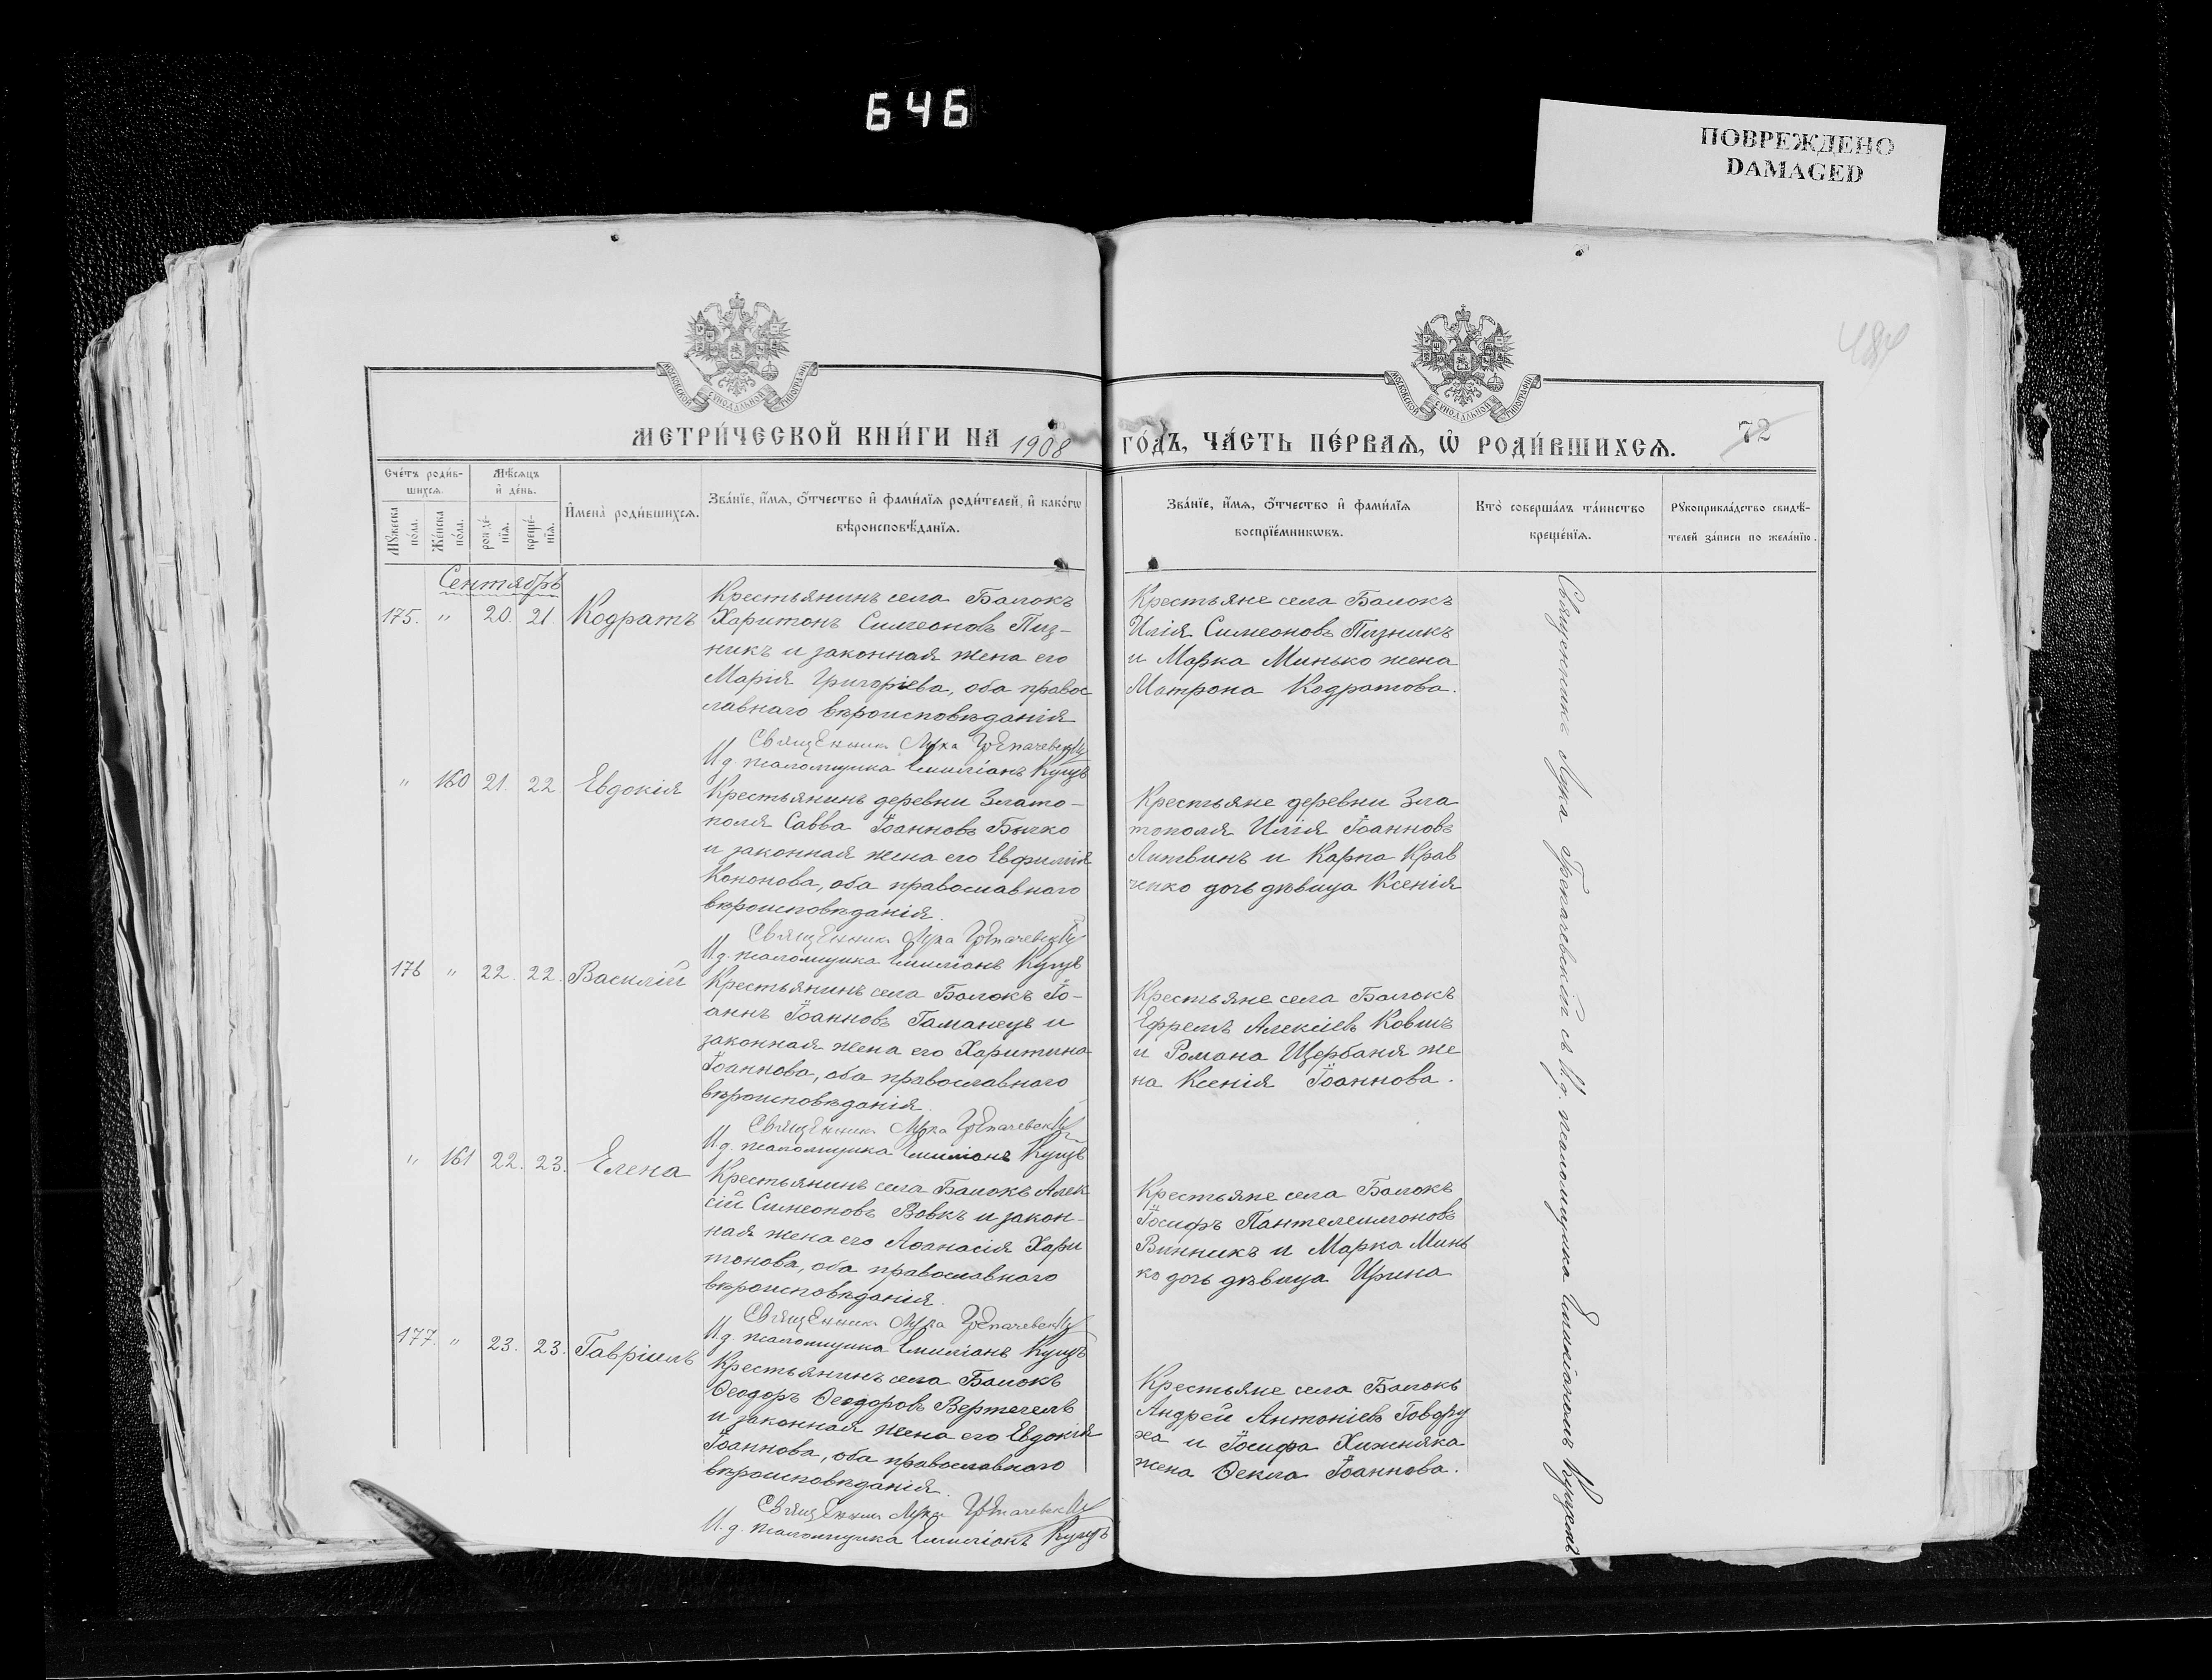 646
ПОВРЕЖДЕНО
DAMAGED
МОСКОВСКОЙ СѴНОДАЛЬНОЙ ТИПОГРАФІИ
МОСКОВСКОЙ СѴНОДАЛЬНОЙ ТИПОГРАФІИ
МЕТРИ́ЧЕСКОЙ КНИ́ГИ НА 1908 ГО́ДЪ, ЧА́СТЬ ПЕ́РВАЯ, Ѡ҆ РОДИ́ВШИХСЯ.
72
Сче́тъ роди́в-
шихся.
Мѣ́сяцъ
и҆ де́нь.
Мꙋ́жеска
по́ла.
Же́нска
по́ла.
рожде́-
нїя.
креще́-
нїя.
И҆мена̀ роди́вшихся.
Зва́нїе, и҆́мя, ѻ҆́тчество и҆ фами́лїя роди́телей, и҆ како́гѡ
вѣроисповѣ́данїя.
Зва́нїе, и҆́мя, ѻ҆́тчество и҆ фами́лїя
воспрїе́мникѡвъ.
Кто̀ соверша́лъ та́инство
креще́нїя.
Рꙋкоприкла́дство свидѣ́-
телей за́писи по жела́нїю.
Сентябрь
175. " 20. 21. Кодратъ
Крестьянинъ села Балокъ
Харитонъ Симеоновъ Пиз-
никъ и законная жена его
Марія Григоріева, оба правос
лавнаго вѣроисповѣданія
Священникъ Лука Грепачевскій
И.д. псаломщика Емиліанъ Куцъ
Крестьяне села Балокъ
Илія Симеоновъ Пизникъ
и Марка Минько жена
Матрона Кодратова.
" 160 21. 22. Евдокія
Крестьянинъ деревни Злато-
поля Савва Іоанновъ Бычко
и законная жена его Евфимія
Кононова, оба православнаго
вѣроисповѣданія.
Священникъ Лука Грепачевскій
И.д. псаломщика Емиліанъ Куцъ
Крестьяне деревни Зла
тополя Илія Іоанновъ
Литвинъ и Карпа Крав
ченко дочь дѣвица Ксенія
176 " 22. 22. Василій
Крестьянинъ села Балокъ Іо-
аннъ Іоанновъ Гаманецъ и
законная жена его Харитина
Іоаннова, оба православнаго
вѣроисповѣданія.
Священникъ Лука Грепачевскій
И.д. псаломщика Емиліанъ Куцъ
Крестьяне села Балокъ
Ефремъ Алексіевъ Ковшъ
и Романа Щербаня же
на Ксенія Іоаннова.
" 161 22. 23. Елена
Крестьянинъ села Балокъ Алек
сій Симеоновъ Вовкъ и закон-
ная жена его Аѳанасія Хари
тонова, оба православнаго
вѣроисповѣданія.
Священникъ Лука Грепачевскій
И.д. псаломщика Емиліанъ Куцъ
Крестьяне села Балокъ
Іосифъ Пантелеимоновъ
Винникъ и Марка Минь
ко дочь дѣвица Ирина
177. " 23. 23. Гавріилъ
Крестьянинъ села Балокъ
Ѳеодоръ Ѳеодоровъ Вертегелъ
и законная жена его Евдокія
Іоаннова, оба православнаго
вѣроисповѣданія.
Священникъ Лука Грепачевскій
И.д. псаломщика Емиліанъ Куцъ
Крестьяне села Балокъ
Андрей Антоніевъ Говору
ха и Іосифа Хижняка
жена Ѳекла Іоаннова.
Священникъ Лука Грепачевскій съ И.д. псаломщика Емиліаномъ Куцемъ